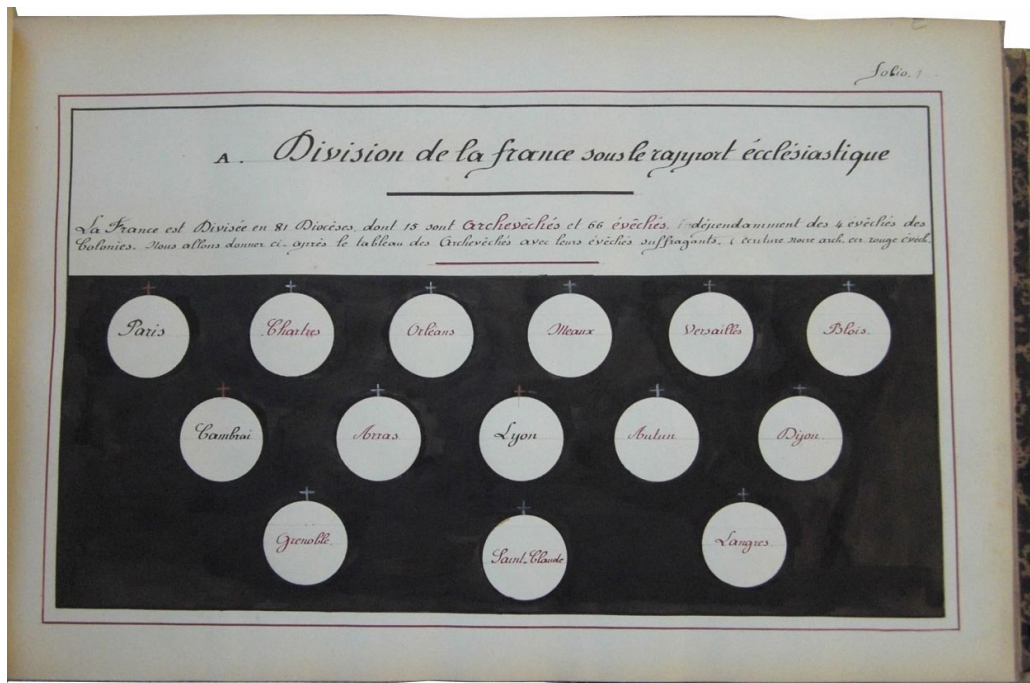 Folio. 1
A. Division de la france sous le rapport écclésiastique
La France est Divisée en 81 Diocèses, dont 15 sont Archevêchés et 66 évêchés, indépendamment des 4 évêchés des
Colonies. Nous allons donner ci-après le tableau des Archevêchés avec leurs évêchés suffragants. écriture noire arch. en rouge évêch.
Paris Chartres Orléans Meaux Versailles Blois.
Cambrai Arras Lyon Autun Dijon.
Grenoble. Saint-Claude Langres.